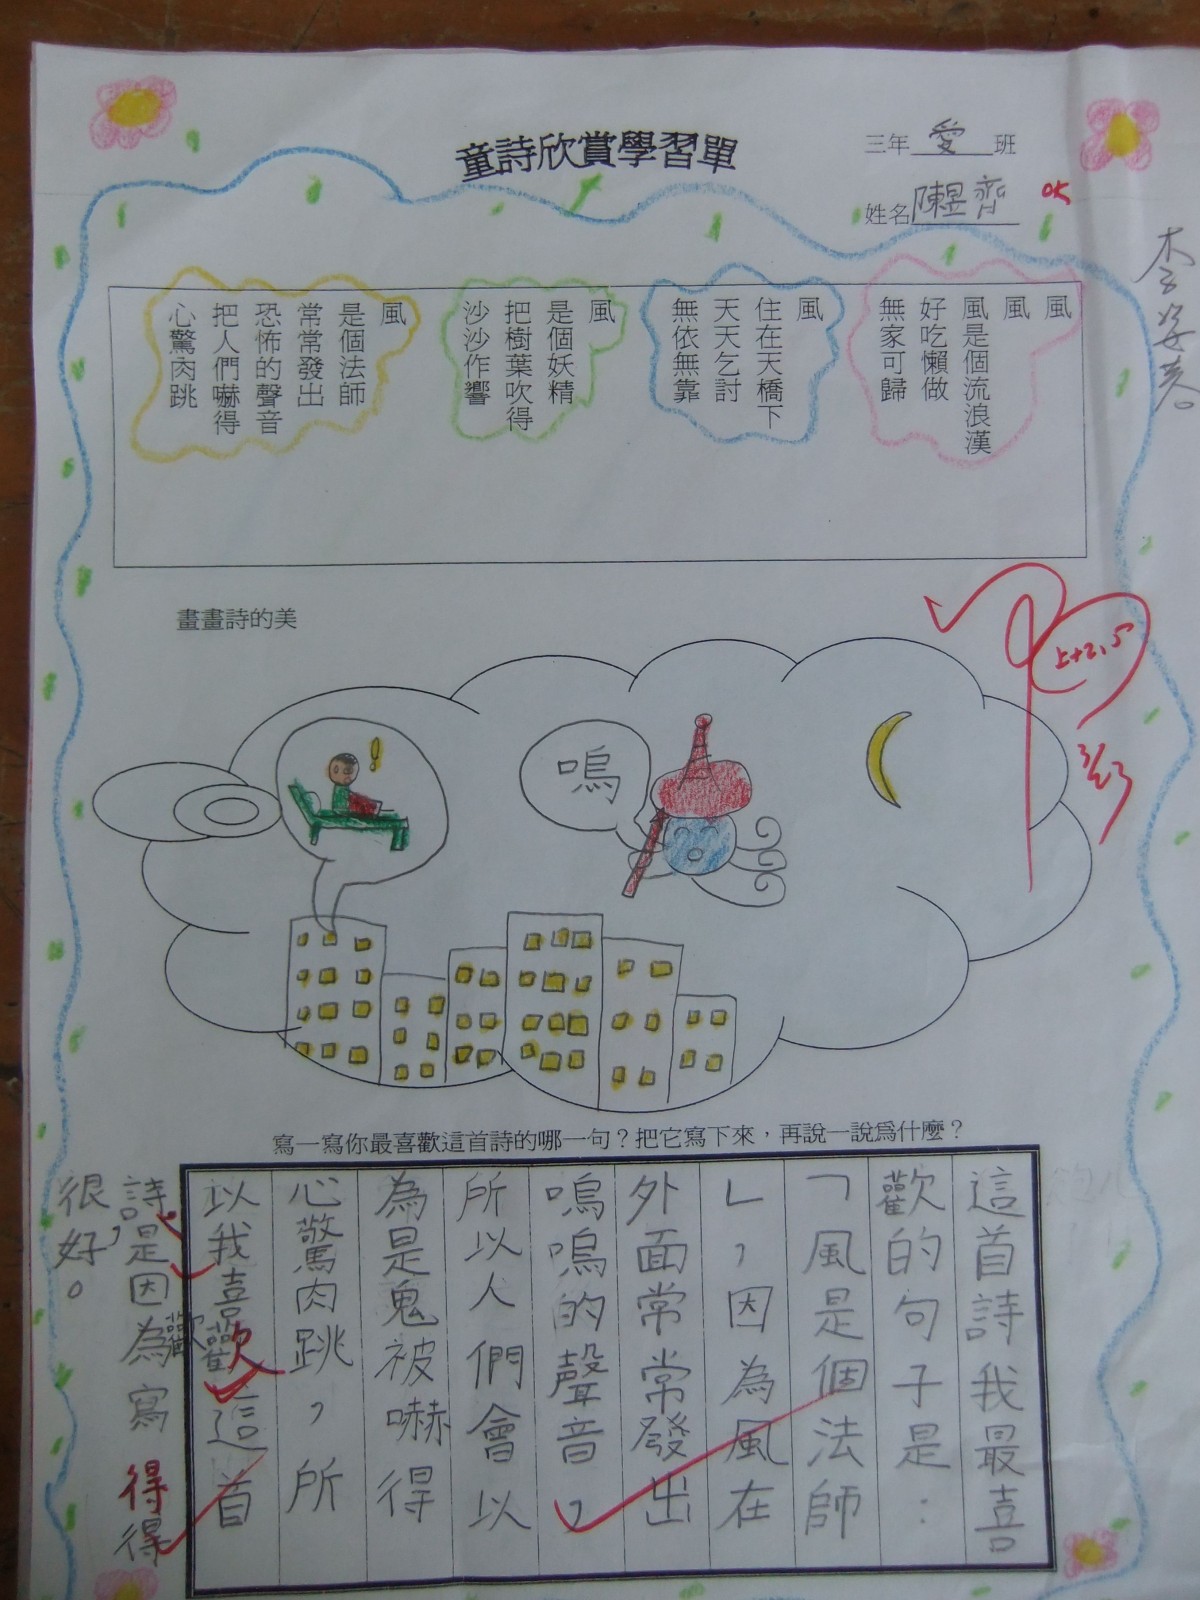 童詩欣賞學習單
三年愛班
姓名陳昱齊
OK
風
風
風是個流浪漢
好吃懶做
無家可歸
風
住在天橋下
天天乞討
無依無靠
風
是個妖精
把樹葉吹得
沙沙作響
風
是個法師
常常發出
恐怖的聲音
把人們嚇得
心驚肉跳
畫畫詩的美
嗚
!
寫一寫你最喜歡這首詩的哪一句？把它寫下來，再說一說為什麼？
這首詩我最喜
歡的句子是：
「風是個法師
」，因為風在
外面常常發出
嗚嗚的聲音，
所以人們會以
為是鬼被嚇得
心驚肉跳，所
以我喜歡這首
詩，是因為寫得
很好。
歡
得